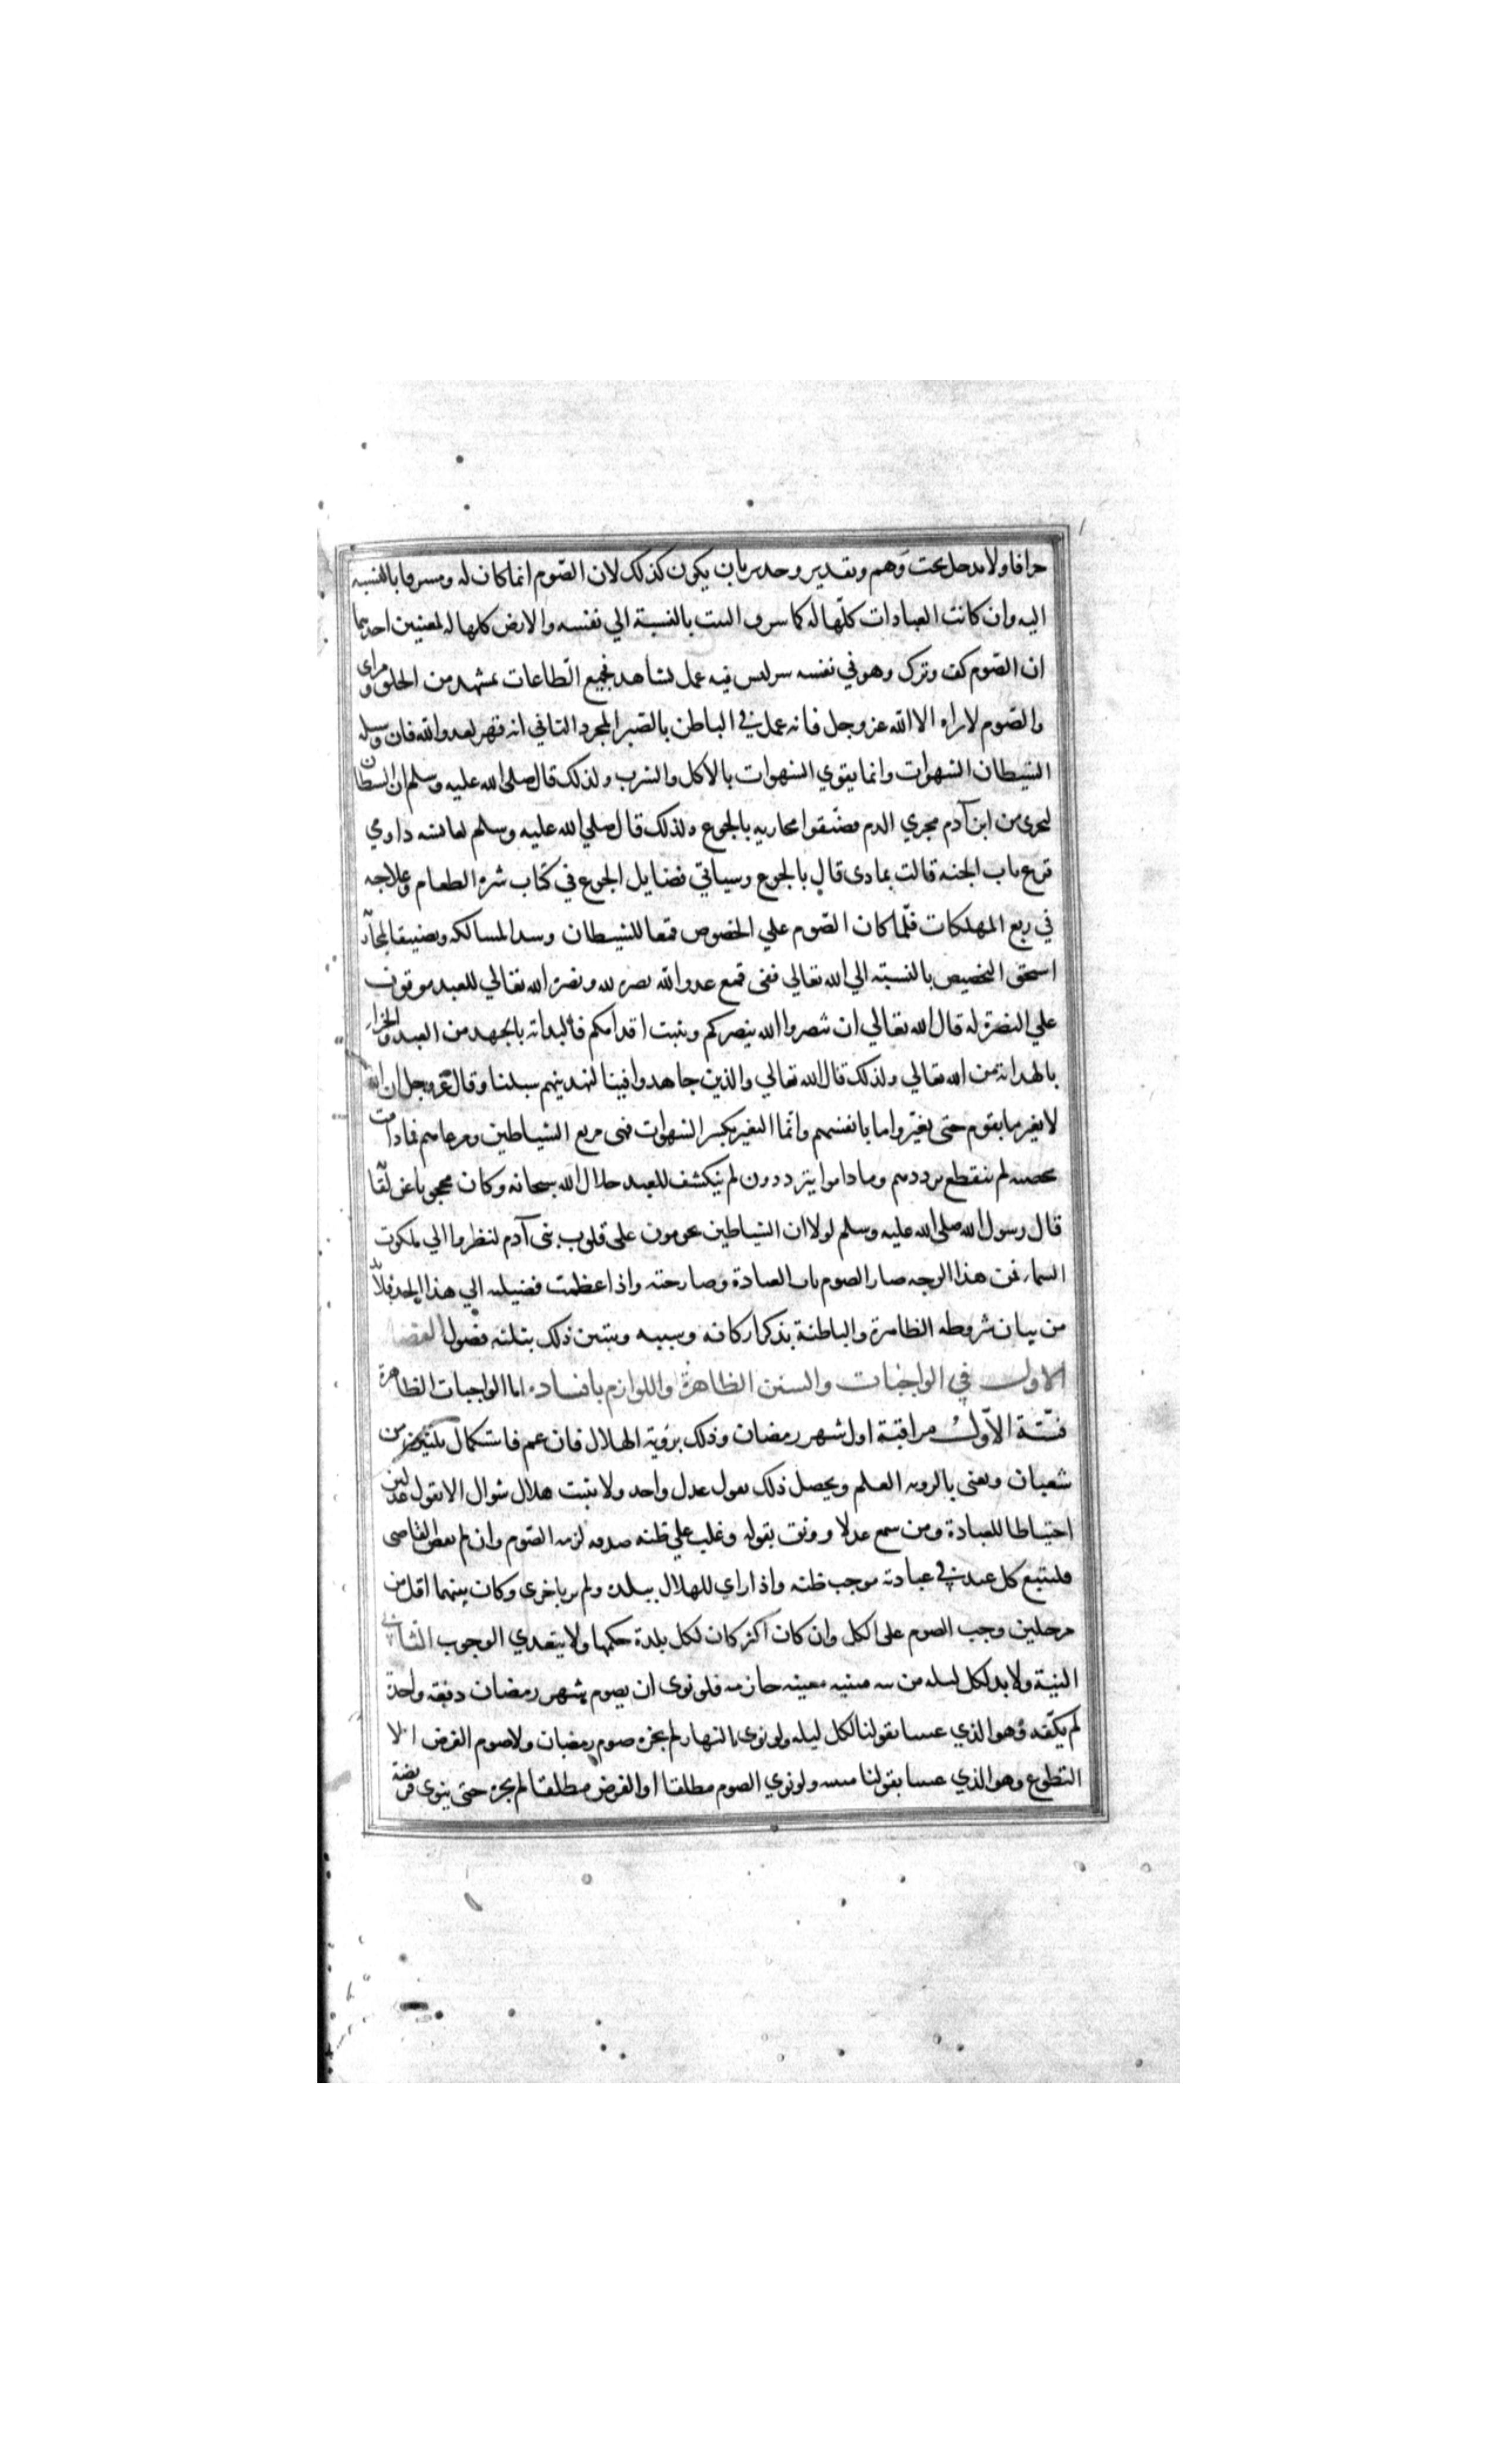 جزافا ولا يدخل تحت وهم وتقدير وجدير بان يكون كذلك لان الصوم انما كان له ومشرفا بالنسبة
اليه وان كانت العبادات كلها له كما شرف البيت بالنسبة الي نفسه والارض كلها له لمعنيين احدهما
ان الصوم كف وترك وهو في نفسه سر ليس فيه عمل يشاهد فجميع الطاعات بمشهد من الخلق ومراى
والصوم لا يراه الا الله عز وجل فانه عمل في الباطن بالصبر المجرد الثاني انه قهر لعدو الله فان وسيلة
الشيطان الشهوات وانما يقوي الشهوات بالاكل والشرب ولذلك قال صلى الله عليه وسلم ان الشيطان
ليجرى من ابن آدم مجري الدم فضيقوا مجاريه بالجوع ولذلك قال صلي الله عليه وسلم لعائشة داومي
قرع باب الجنة قالت بماذى قال بالجوع وسياتي فضايل الجوع في كتاب شره الطعام وعلاجه
في ربع المهلكات فلما كان الصوم علي الخصوص قمعا للشيطان وسدا لمسالكه وتضييقا لمجاريه
استحق التخصيص بالنسبة الي الله تعالي ففى قمع عدو الله نصرة لله ونصرة الله تعالي للعبد موقوف
علي النصرة له قال الله تعالي ان تنصروا الله ينصركم ويثبت اقدامكم فالبداية بالجهد من العبد والجزاء
بالهداية من الله تعالي ولذلك قال الله تعالي والذين جاهدوا فينا لنهدينهم سبلنا وقال عز وجل ان الله
لا يغير ما بقوم حتى يغيروا ما بانفسهم وانما التغير بكسر الشهوات فهى مربع الشياطين ومرعاهم فمادامت
مخصبه لم ينقطع ترددهم وماداموا يترددون لم ينكشف للعبد جلال الله سبحانه وكان محجوبا عن لقا
قال رسول الله صلى الله عليه وسلم لولا ان الشياطين يحومون على قلوب بنى آدم لنظروا الي ملكوت
السماء فمن هذا الوجه صار الصوم باب العبادة وصار جنة واذا عظمت فضيلته الي هذا الحد فلا بد
من بيان شروطه الظاهرة والباطنة بذكر اركانه وسببه ويتبين ذلك بثلثة فصول الفصل
الاول في الواجبات والسنن الظاهرة واللوازم بافساده اما الواجبات الظاهرة
فستة الاول مراقبة اول شهر رمضان وذلك برؤية الهلال فان غم فاستكمال ثلثين من
شعبان ويعنى بالروية العلم ويحصل ذلك بقول عدل واحد ولا يثبت هلال شوال الا بقول عدلين
احتياطا للعبادة ومن سمع عدلا ووثق بقوله وغلب علي ظنه صدقه لزمه الصوم وان لم يقض القاضى
فليتبع كل عبد في عبادته موجب ظنه واذا راي للهلال ببلدة ولم ير باخرى وكان بينهما اقل من
مرحلين وجب الصوم على الكل وان كان اكثر كان لكل بلدة حكمها ولا يتعدي الوجوب الثاني
النية ولا بد لكل ليلة من نية مبيتة معينة جازمة فلو نوى ان يصوم شهر رمضان دفعة واحدة
لم يكفه وهو الذي عنينا بقولنا لكل ليلة ولو نوى بالنهار لم يجزه صوم رمضان ولا صوم الفرض الا
التطوع وهو الذي عنينا بقولنا مبيتة ولو نوي الصوم مطلقا او الفرض مطلقا لم يجزه حتى ينوى فريضة